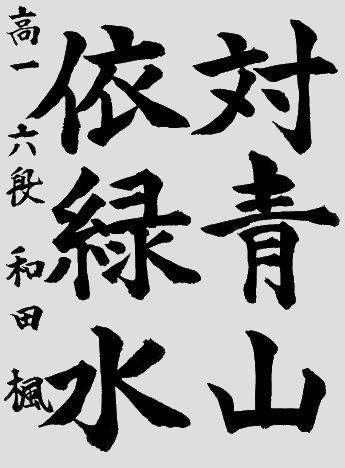 対青山
依緑水
高一 六段 和田 楓